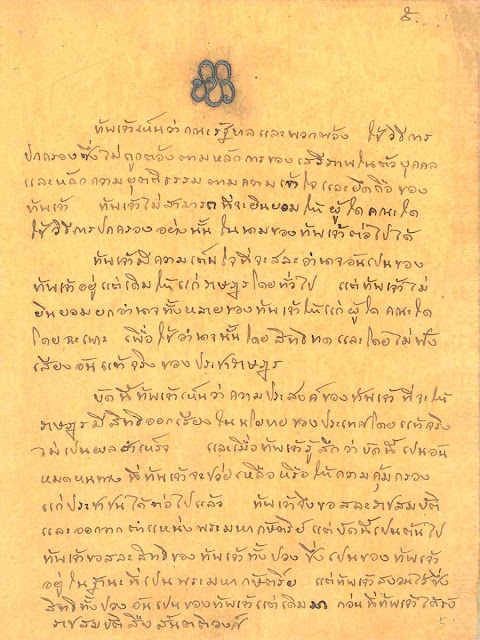 ๕.
ข้าพเจ้าเห็นว่าคณะรัฐบาลและพวกพ้อง ใช้วิธีการ
ปกครองซึ่งไม่ถูกต้องตามหลักการของเสรีภาพในตัวบุคคล
และหลักความยุตติธรรมตามความเข้าใจและยึดถือของ
ข้าพเจ้า ข้าพเจ้าไม่สามารถที่จะยินยอมให้ ผู้ใด คณะใด
ใช้วิธีการปกครองอย่างนั้น ในนามของข้าพเจ้าต่อไปได้
ข้าพเจ้ามีความเต็มใจที่จะสละอำนาจอันเป็นของ
ข้าพเจ้าอยู่แต่เดิมให้แก่ราษฎรโดยทั่วไป แต่ข้าพเจ้าไม่
ยินยอมยกอำนาจทั้งหลายของข้าพเจ้าให้แก่ผู้ใด คณะใด
โดยฉะเพาะ เพื่อใช้อำนาจนั้นโดยสิทธิขาด และโดยไม่ฟัง
เสียงอันแท้จริงของประชาราษฎร
บัดนี้ข้าพเจ้าเห็นว่าความประสงค์ของข้าพเจ้าที่จะให้
ราษฎรมีสิทธิออกเสียงในนโยบายของประเทศโดยแท้จริง
ไม่เป็นผลสำเร็จ และเมื่อข้าพเจ้ารู้สึกว่าบัดนี้เป็นอัน
หมดหนทางที่ข้าพเจ้าจะช่วยเหลือหรือให้ความคุ้มครอง
แก่ประชาชนได้ต่อไปแล้ว ข้าพเจ้าจึงขอสละราชสมบัติ
และออกจากตำแหน่งพระมหากษัตริย์ แต่บัดนี้เป็นต้นไป
ข้าพเจ้าขอสละสิทธิของข้าพเจ้าทั้งปวง ซึ่งเป็นของข้าพเจ้า
อยู่ในฐานะที่เป็นพระมหากษัตริย์ แต่ข้าพเจ้าสงวนไว้ซึ่ง
สิทธิทั้งปวงอันเป็นของข้าพเจ้าแต่เดิมมา ก่อนที่ข้าพเจ้าได้รับ
ราชสมบัติสืบสันตติวงศ์
5.